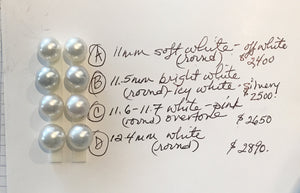 A 11mm soft white - off white
(round) $2400
B 11.5mm bright white
(round) - icy white - silvery
$2500!
C 11.6-11.7 white - pink
(round) overtone $2650
D 12.4mm white
(round) $2890.